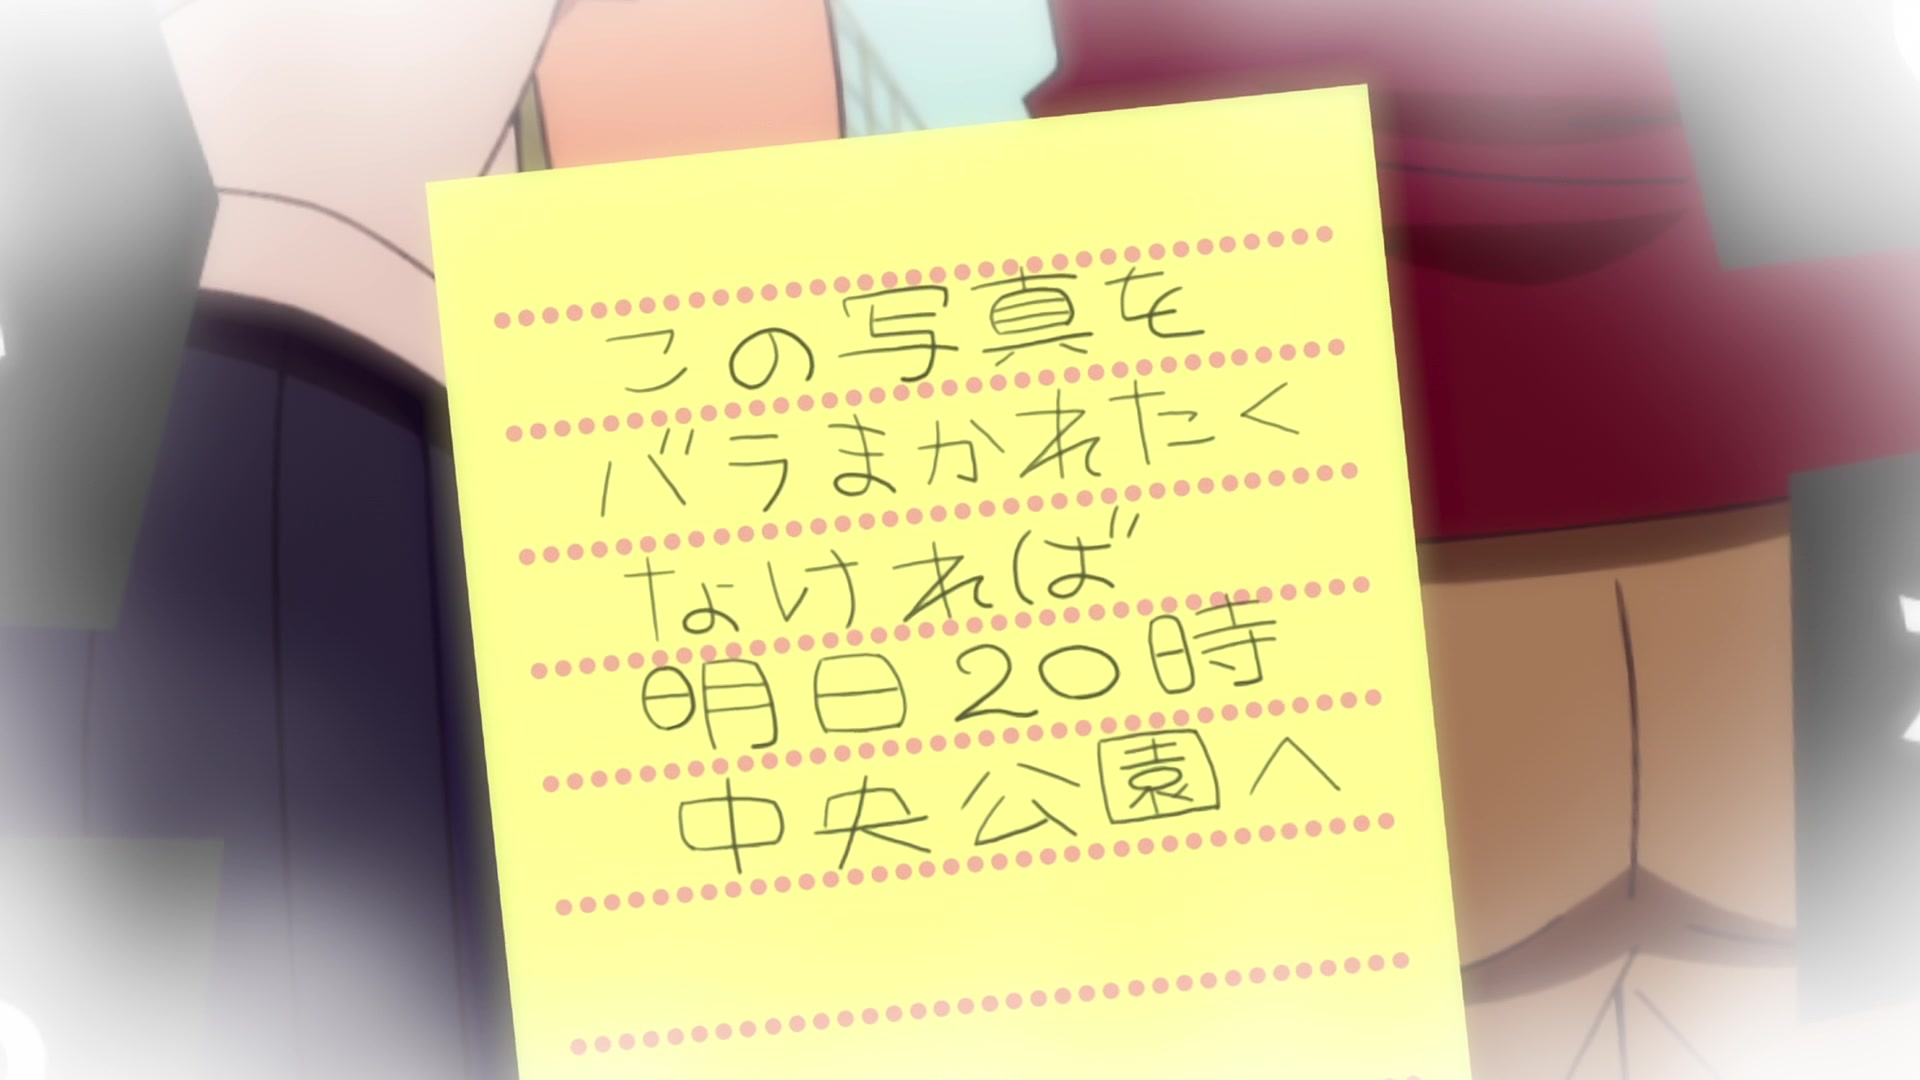 この写真を
バラまかれたく
なければ
明日20時
中央公園へ